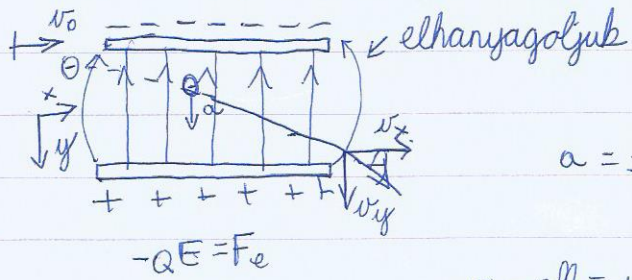 v₀
− − − − − − −
elhanyagoljuk
⊖
x
y
⊖
a
vₓ
a =
v_y
+ + + + + +
-QE = Fₑ